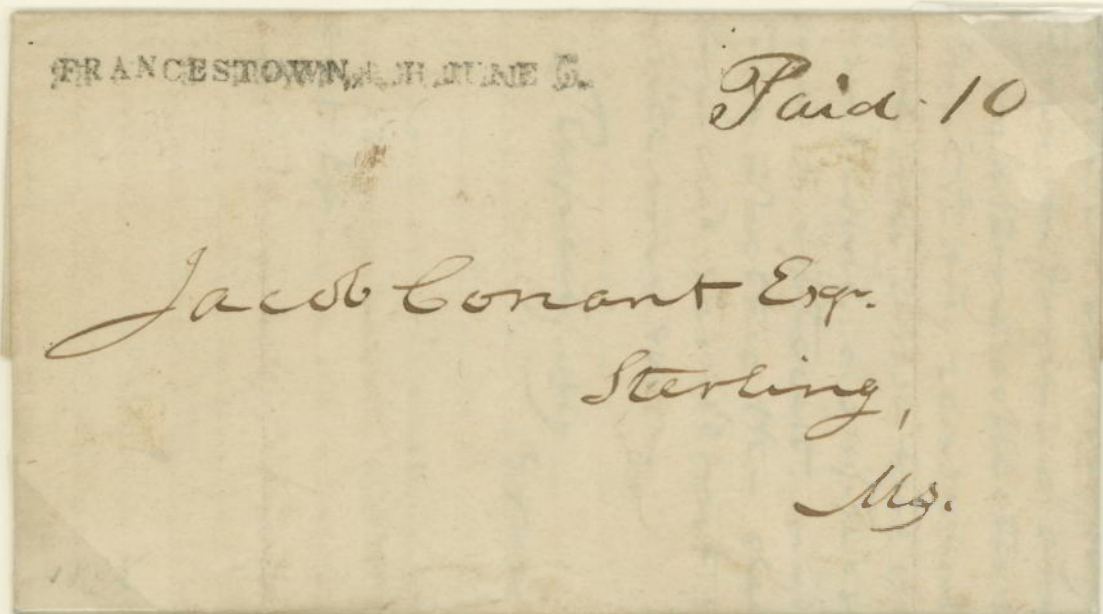 FRANCESTOWN, N.H. JUNE 5.
Paid 10
Jacob Conant Esqr.
Sterling,
Ms.